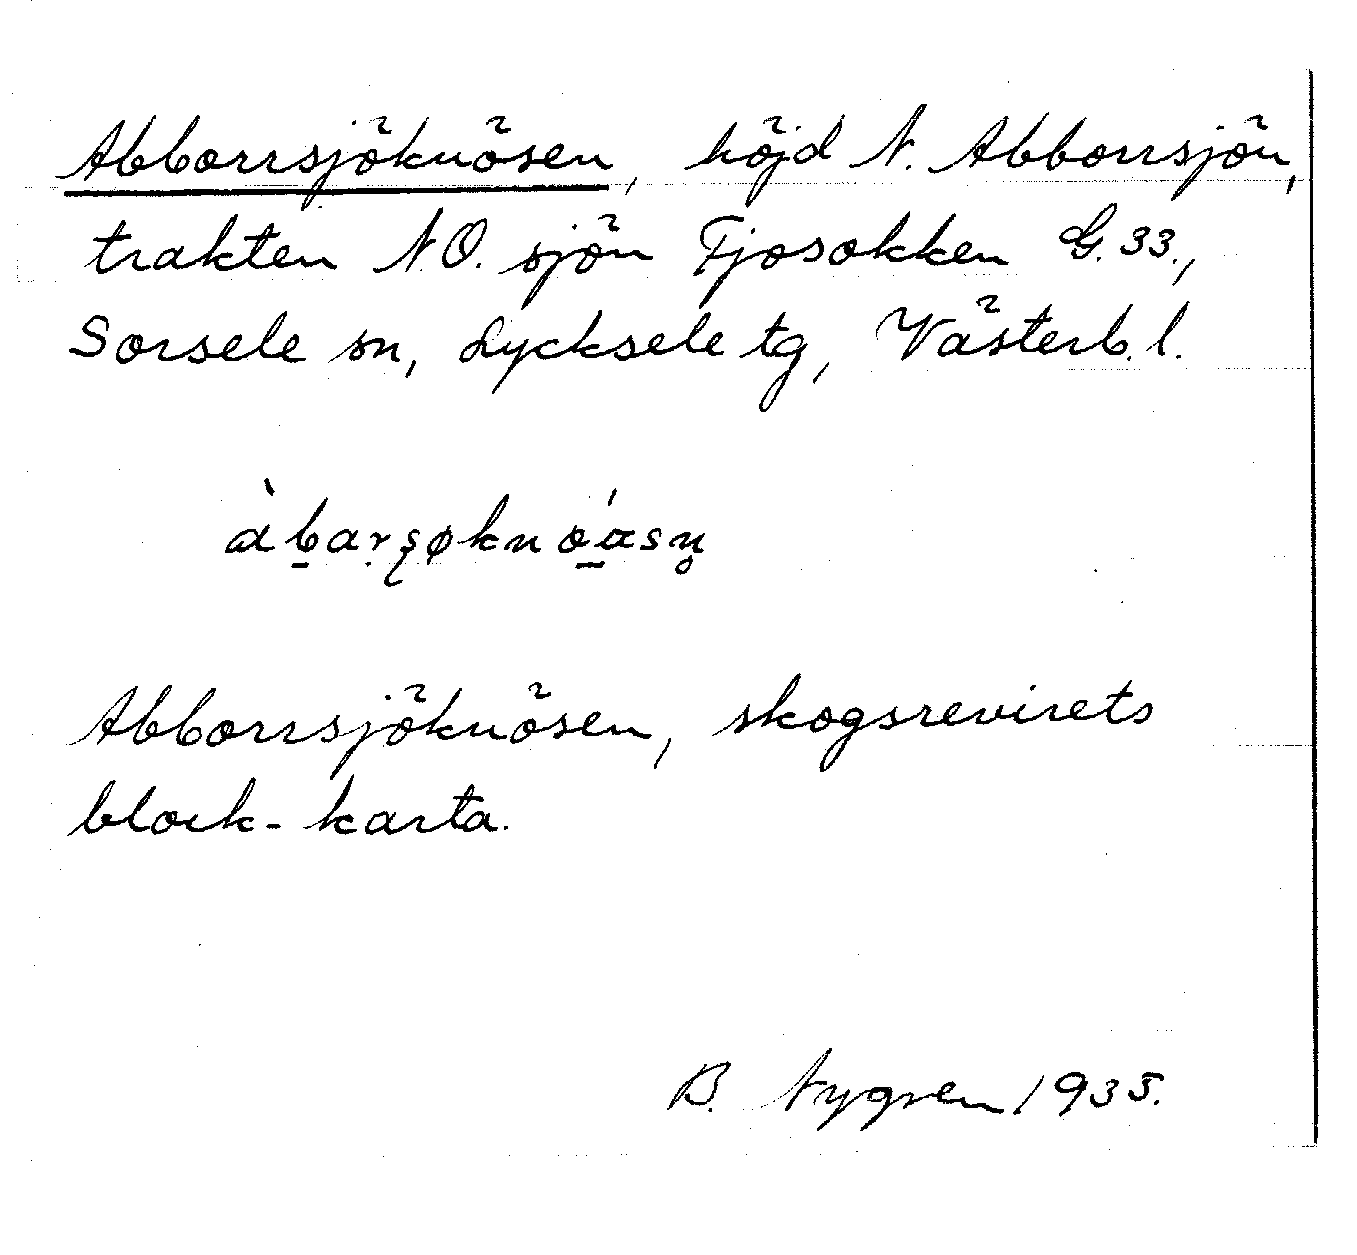 Abborrsjöknösen, höjd N. Abborrsjön,
trakten N.O. sjön Tjosokken G. 33.,
Sorsele sn, Lycksele tg, Västerb. l.
àb̠arʂøkno̠ásn̥
Abborrsjöknösen, skogsrevirets
block-karta.
B. Nygren 1935.